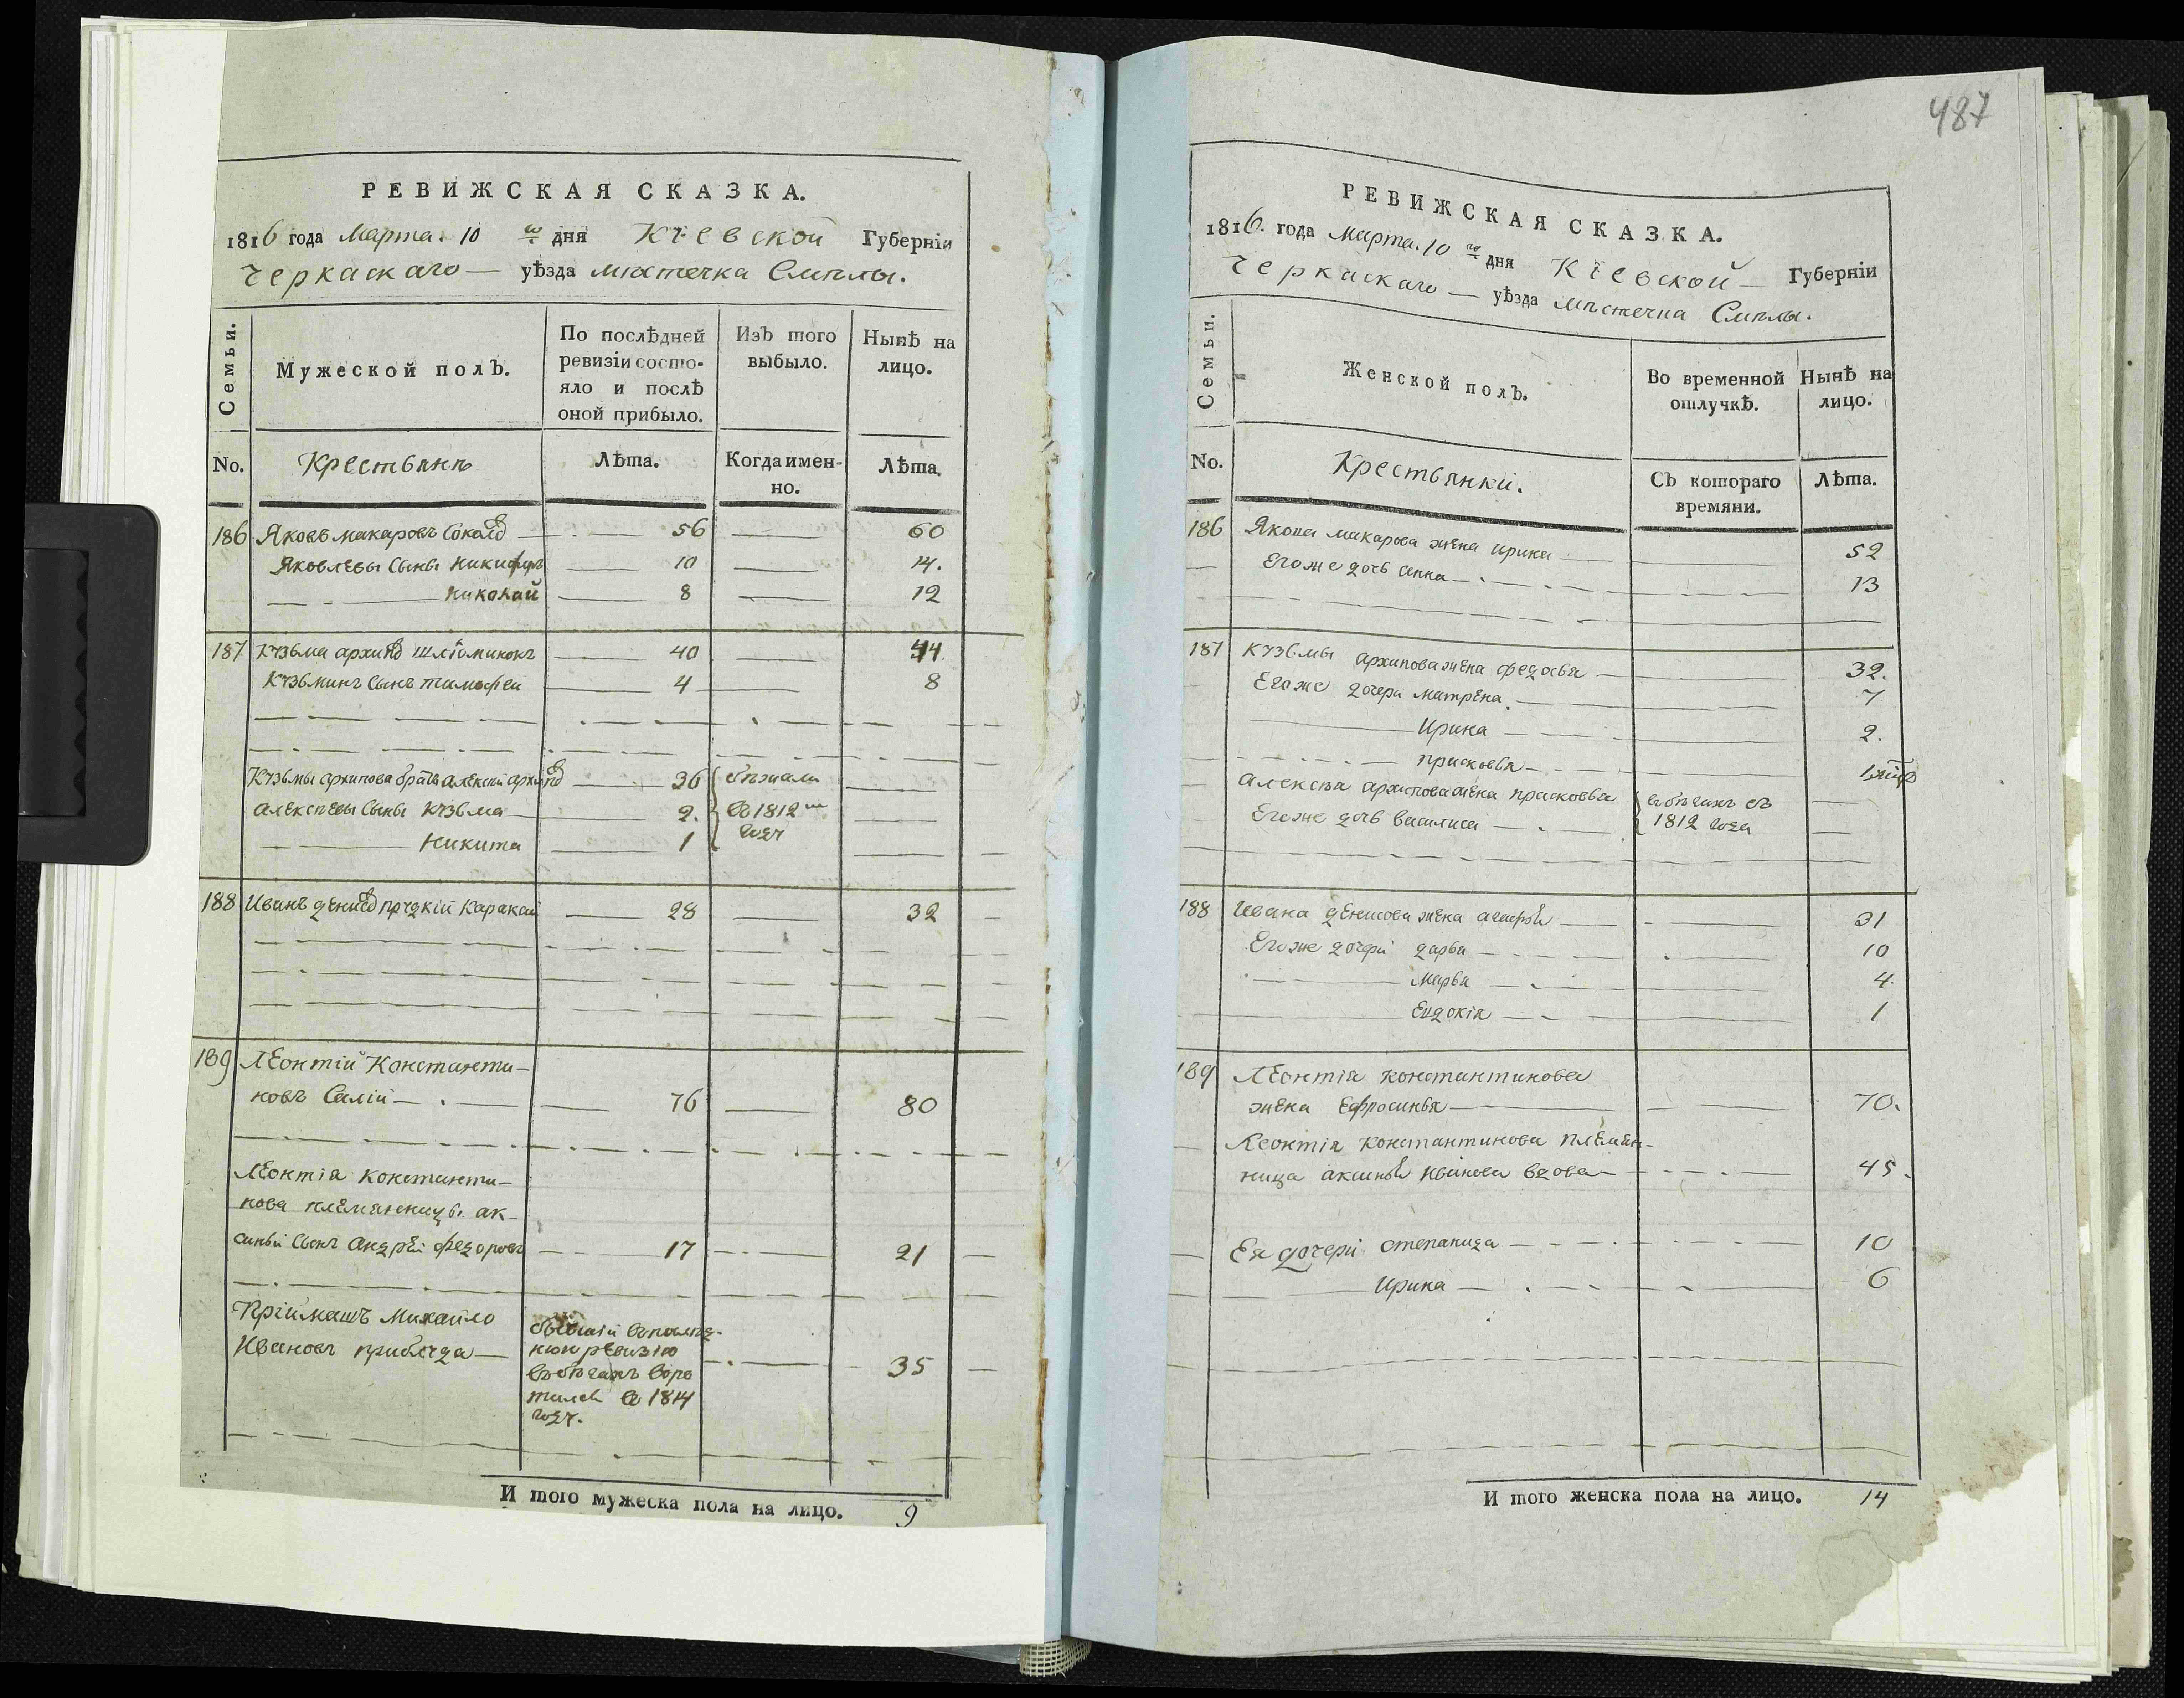 РЕВИЖСКАЯ СКАЗКА.
1816 года Марта. 10 го дня Кіевской Губерніи
Черкаскаго — уѣзда мѣстечка Смѣлы.
Семьи.
Мужеской полЪ.
По послѣдней ревизіи состо-
яло и послѣ
оной прибыло.
ИзЪ того
выбыло.
Нынѣ на
лицо.
No.
Крестьянъ
Лѣта.
Когда имен-
но.
Лѣта.
186 Яковъ макаровъ 56 60
Яковлевы Сыны никифоръ 10 14.
николай 8 12
187 Кузьма архипов 40 44
Кузьминъ Сынъ тимофей 4 8
Кузьмы архипова братъ алексѣй архипов 36 бѣжали
алексѣевы Сыны Кузьма 2. в 1812 м
Никита 1 году
188 Иванъ денисов Каракай 28 32
189 Леонтій Константи-
новъ Салій 76 80
Леонтія константи-
нова племянницы ак-
синьи Сынъ андрей федоровъ 17 21
Пріймашъ Михайло
Ивановъ приблуда 35
бывшій
ревизію
въ бѣгахъ воро
тился в 1814
году.
И того мужеска пола на лицо. 9
487
РЕВИЖСКАЯ СКАЗКА.
1816. года Марта. 10 го дня Кіевской — Губерніи
Черкаскаго — уѣзда мѣстечка Смѣлы.
Семьи.
Женской полЪ.
Во временной
отлучкѣ.
Нынѣ на
лицо.
No.
Крестьянки.
СЪ котораго
времяни.
Лѣта.
186 Якова макарова жена ирина 52
Егоже дочь анна 13
187 Кузьмы архипова жена федосья 32.
Егоже дочери матрена 7
Ирина 2.
присковья 1
алексѣя архипова жена прасковья в бѣгахъ съ
Егоже дочь василиса 1812 года
188 Ивана денисова жена агафья 31
Егоже дочери дарья 10
Марья 4.
Евдокія 1
189 Леонтія константинова
жена Ефросинья 70.
Леонтія константинова племян-
ница аксинья Иванова вдова 45.
Ея дочери степанида 10
Ирина 6
И того женска пола на лицо. 14